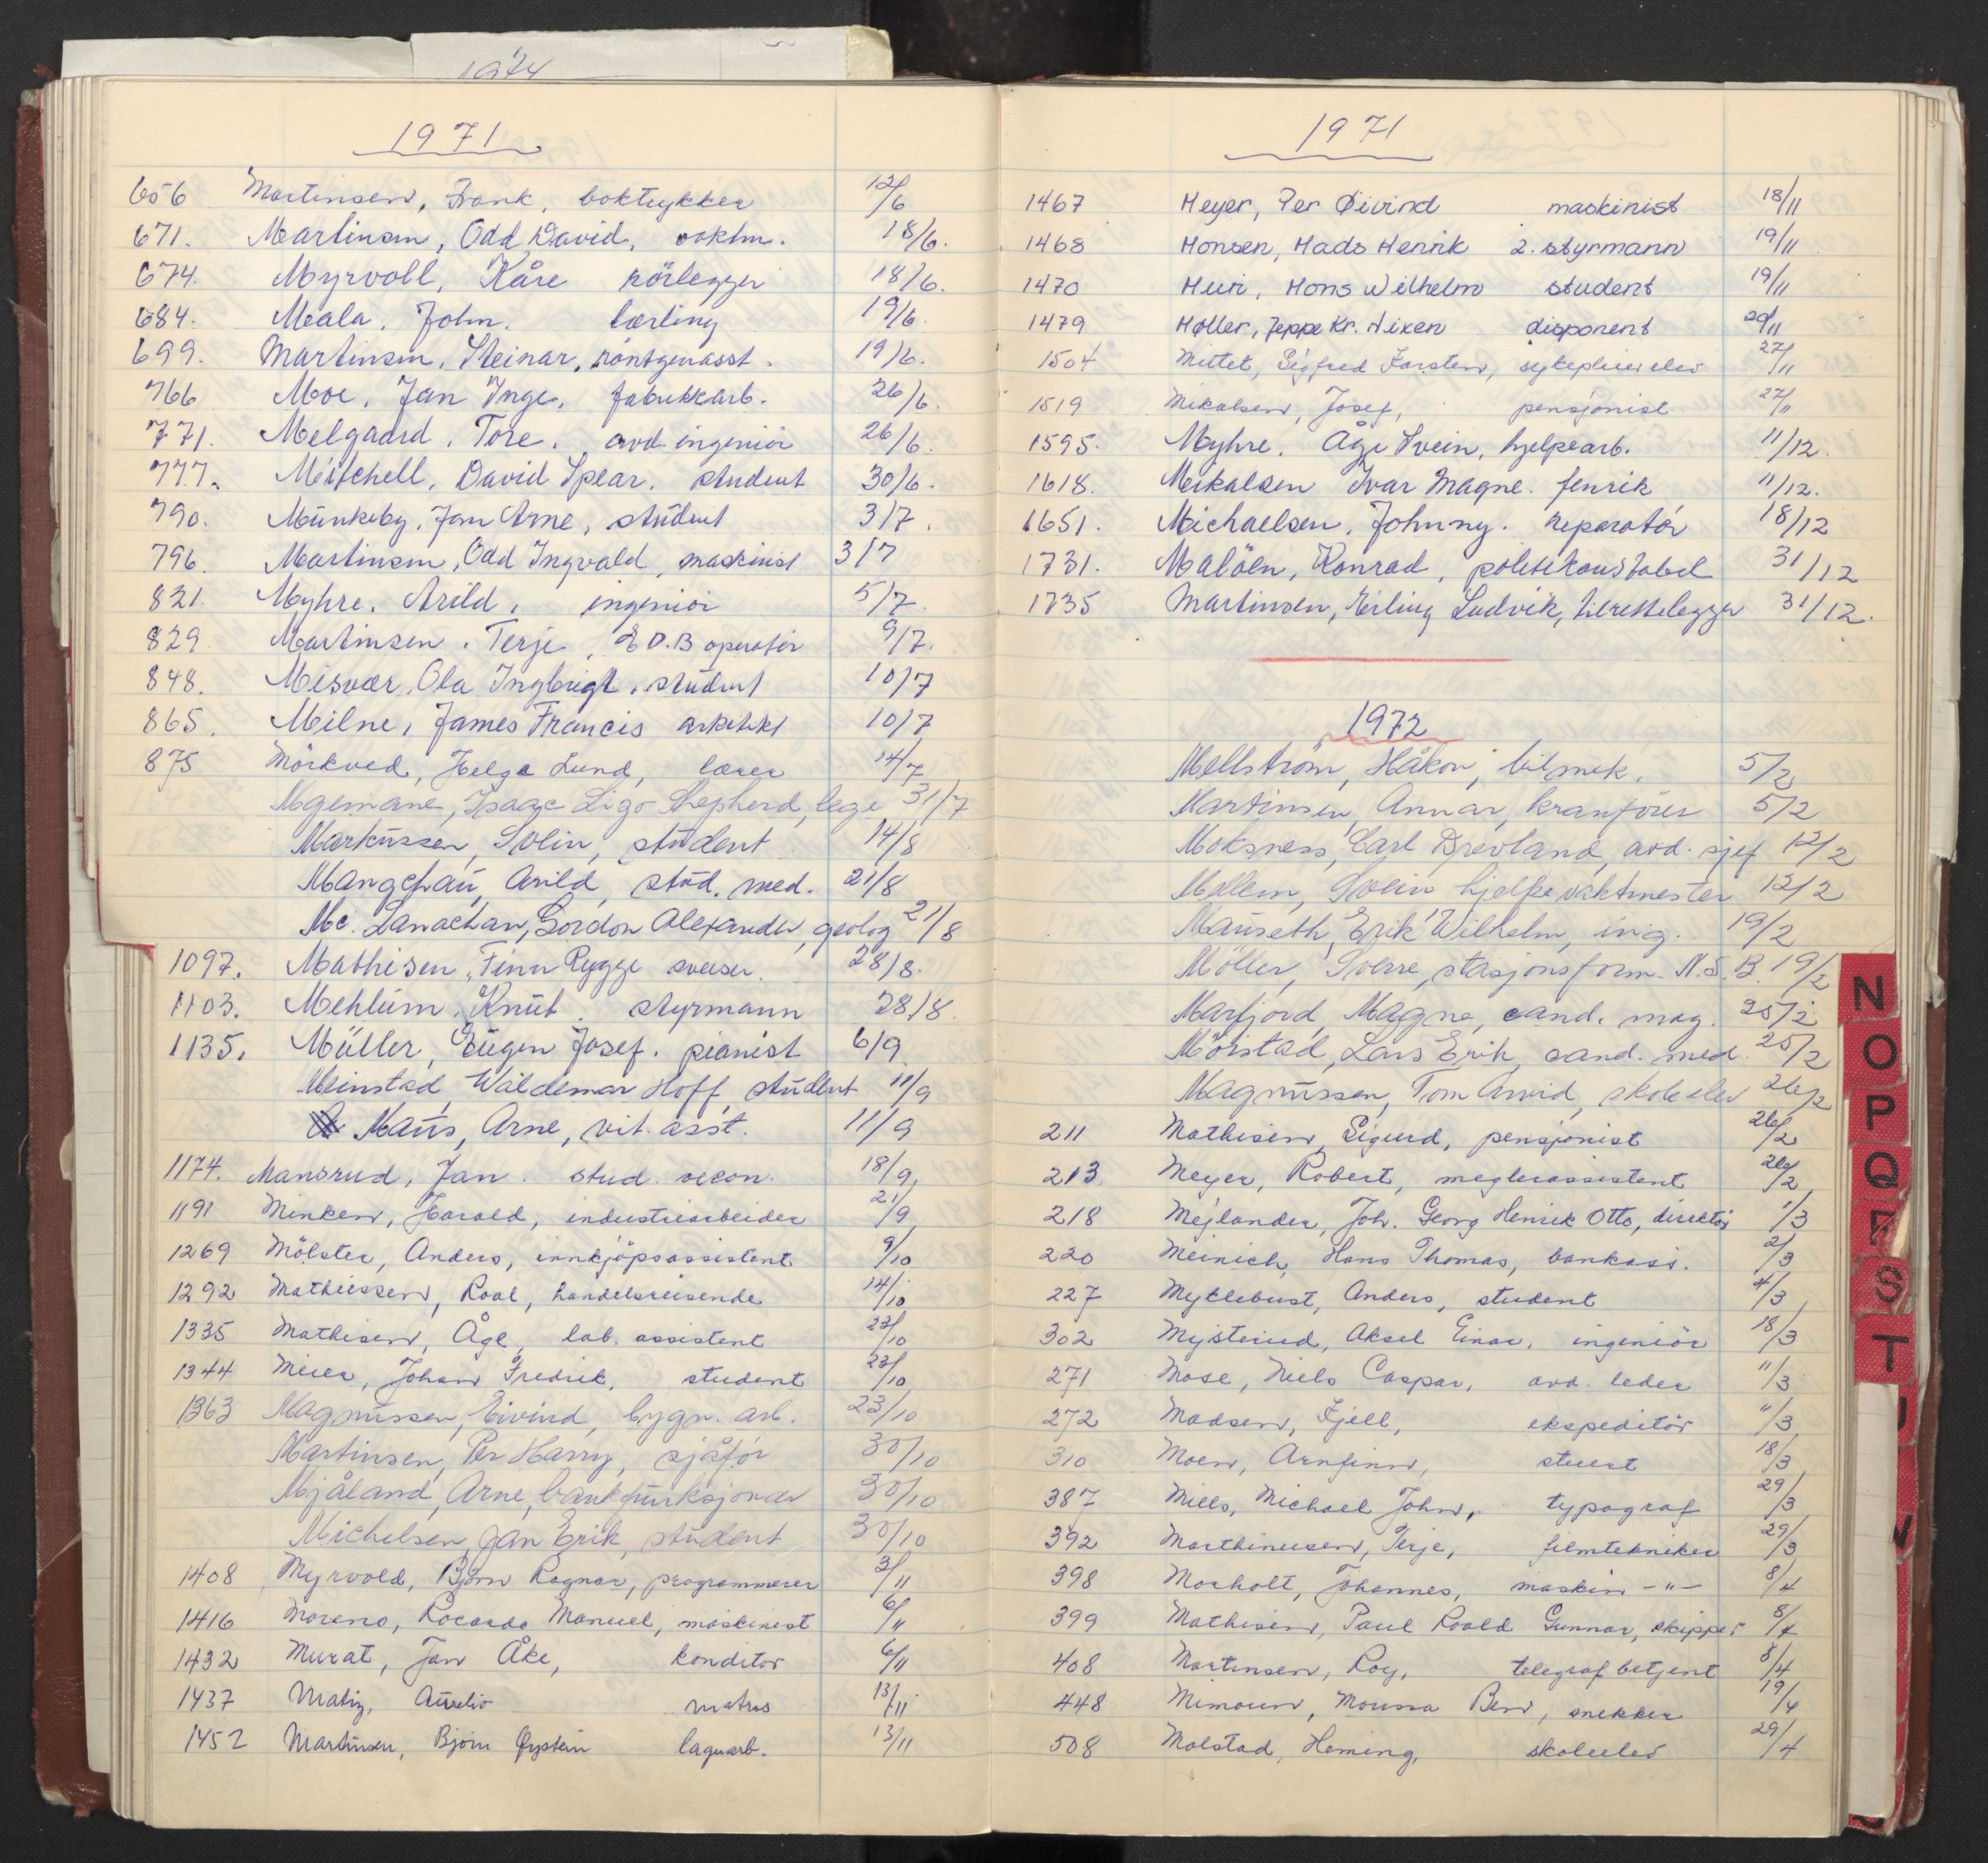 1974
1971
656 Martinsen, Frank, boktrykker 12/6
671. Martinsen, Odd David, vaktm. 18/6.
674. Myrvoll, Kåre rörlegger 18/6.
684. Meala, John. lærling 19/6.
699. Martinsen, Steinar, röntgenasst. 19/6.
766 Moe, Jan Inge, fabrikkarb. 26/6.
771. Melgaard, Tore. avd. ingeniör 26/6.
777. Mitchell, David Spear. student 30/6.
790. Munkeby, Jan Arne, student 3/7.
796. Martinsen, Odd Ingvald, maskinist 3/7
821. Myhre, Arild, ingeniör 5/7.
829 Martinsen, Terje, E.D.B operatör 9/7.
848. Misvær, Ola Ingbrigt, student 10/7
865. Milne, James Francis arkitekt 10/7
875 Mörkved, Helge Lund, lærer 14/7
Mgemane, Isaac Ligo Shepherd, lege 31/7
Markussen, Svein, student 14/8
Mangchau, Arild, stud. med. 21/8
Mc. Lanachan, Gordon Alexander, geolog 21/8
1097. Mathisen, Finn Rygge sveiser. 28/8.
1103. Mehlum, Knut. styrmann 28/8.
1135. Müller, Eugen Josef. pianist 6/9
Meinstad, Waldemar Hoff, student 11/9
Maus, Arne, vit. asst. 11/9
1174. Mansrud, Jan. stud. oecon. 18/9.
1191 Minken, Harald, industriarbeider 21/9
1269 Mölster, Anders, innkjöpsassistent 9/10
1292 Mathiessen, Roal, handelsreisende 14/10
1335 Mathisen, Åge, lab. assistent 23/10
1344 Meier, Johan Fredrik, student 23/10
1363 Magnussen, Eivind, bygn. arb. 23/10
Martinsen, Per Harry, sjåför 30/10
Mjåland, Arne, bankfunksjonær 30/10
Michelsen, Jan Erik, student 30/10
1408 Myrvold, Bjørn Ragnar, programmerer 3/11
1416 Moreno, Rocardo Manuel, maskinist 6/11
1432 Murat, Jan Åke, konditor 6/11
1437 Matiz, Aurelio matros 13/11
1452 Martinsen, Bjørn Øystein lagerarb. 13/11
1971
1467 Meyer, Per Øivind maskinist 18/11
1468 Monsen, Mads Henrik 2. styrmann 19/11
1470 Muri, Mons Wilhelm student 19/11
1479 Møller, Jeppe Kr. Nixen disponent 20/11
1504 Mittet, Sigfred Torsten, sykepleierelev 27/11
1519 Mikalsen, Josef, pensjonist 27/11
1595. Myhre, Åge Svein, hjelpearb. 11/12.
1618. Mikalsen Ivar Magne. fenrik 11/12.
1651. Michaelsen, Johnny. reparatör 18/12
1731. Malöen, Konrad, politikonstabel 31/12
1735 Martinsen, Erling Ludvik, tilrettelegger 31/12.
1972
Mellström, Håkon, bilmek. 5/2
Martinsen, Annar, kranförer 5/2
Moksness, Carl Drevland, avd. sjef 12/2
Mellem, Svein hjelpevaktmester 12/2
Mauseth, Erik Wilhelm, ing. 19/2
Möller, Sverre, stasjonsform. N.S.B. 19/2
Marfjord, Magne, cand. mag. 25/2
Möistad, Lars Erik, cand. med. 25/2
Magnussen, Tom Arvid, skoleelev 26/2
211 Mathisen, Sigurd, pensjonist 26/2
213 Meyer, Robert, meglerassistent 26/2
218 Mejlander, Joh. Georg Henrik Otto, direktör 1/3
220 Meinich, Hans Thomas, bankass. 2/3
227 Myklebust, Anders, student 4/3
302 Mysterud, Aksel Einar, ingeniör 18/3
271 Mose, Niels Caspar, avd. leder "/3
272 Madsen, Kjell, ekspeditör "/3
310 Moen, Arnfinn, stuert 18/3
387 Mills, Michael John, typograf 29/3
392 Marthinussen, Terje, filmtekniker 29/3
398 Morholt, Johannes, maskin -"- 8/4
399 Mathisen, Paul Roald Gunnar, skipper 8/4
408 Martinsen, Roy, telegrafbetjent 8/4
448 Mimoun, Moussa Ben, snekker 19/4
508 Molstad, Heming, skoleelev 29/4
N
O
P
Q
R
S
T